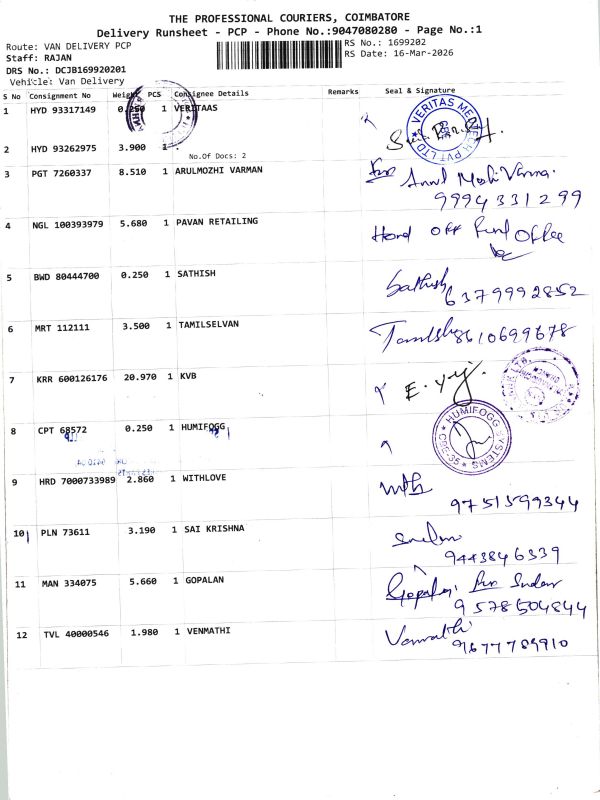 THE PROFESSIONAL COURIERS, COIMBATORE
Delivery Runsheet - PCP - Phone No.:9047080280 - Page No.:1
Route: VAN DELIVERY PCP
RS No.: 1699202
Staff: RAJAN
RS Date: 16-Mar-2026
DRS No.: DCJB169920201
Vehicle: Van Delivery
S No Consignment No Weight PCS Consignee Details Remarks Seal & Signature
1 HYD 93317149 1 VERITAAS
VERITAS MEDTECH PVT LTD
2 HYD 93262975 3.900 1
No.Of Docs: 2
3 PGT 7260337 8.510 1 ARULMOZHI VARMAN
9994331299
4 NGL 100393979 5.680 1 PAVAN RETAILING
Office
5 BWD 80444700 0.250 1 SATHISH Sathish
6379992852
6 MRT 112111 3.500 1 TAMILSELVAN 8610699678
7 KRR 600126176 20.970 1 KVB
8 CPT 68572 0.250 1 HUMIFOGG
HUMIFOGG SYSTEMS
CBE-35
9 HRD 7000733989 2.860 1 WITHLOVE
9751599344
10 PLN 73611 3.190 1 SAI KRISHNA
9443846339
11 MAN 334075 5.660 1 GOPALAN
9578504844
12 TVL 40000546 1.980 1 VENMATHI
9677789910